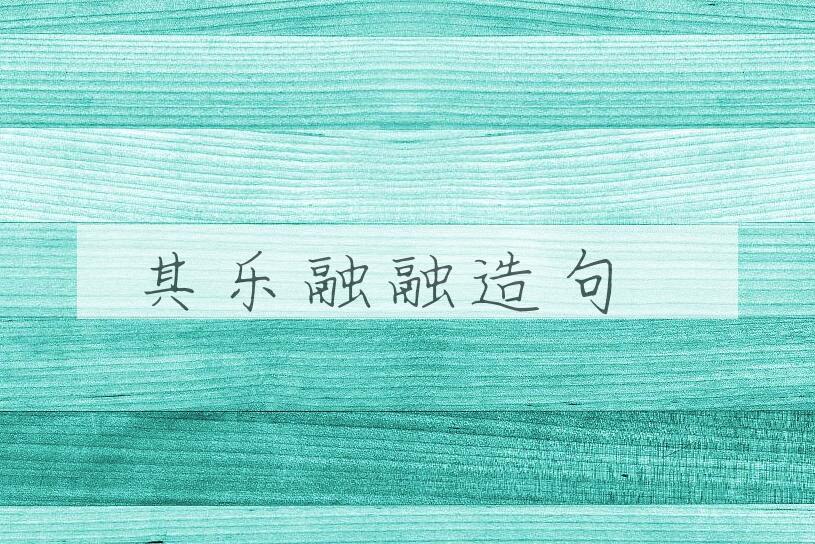 其乐融融造句